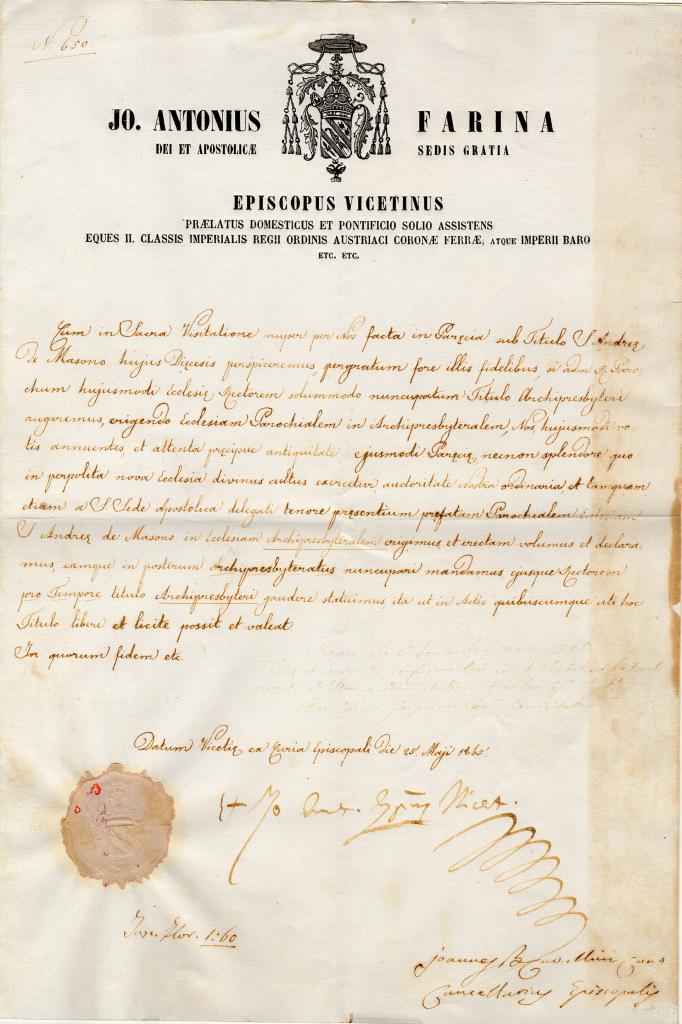 N. 650
JO. ANTONIUS FARINA
DEI ET APOSTOLICÆ SEDIS GRATIA
EPISCOPUS VICETINUS
PRÆLATUS DOMESTICUS ET PONTIFICIO SOLIO ASSISTENS
EQUES II. CLASSIS IMPERIALIS REGII ORDINIS AUSTRIACI CORONÆ FERRÆ, ATQUE IMPERII BARO
ETC. ETC.
Cum in Sacra Visitatione nuper per Nos facta in Parœcia sub Titulo S. Andreę
de Masono hujus Diœcesis perspiceremus, pergratum fore illis fidelibus, si adm. R. Paro-
chum hujusmodi Ecclesię Rectorem solummodo nuncupatum Titulo Archipresbyteri
augeremus, erigendo Ecclesiam Parochialem in Archipresbyteralem, Nos, hujusmodi vo-
tis annuentes, et attenta pręcipue antiquitate ejusmodi Parœcię, necnon splendore quo
in perpolita nova Ecclesia divinus cultus exercetur, auctoritate Nostra ordinaria, et tamquam
etiam a S. Sede Apostolica delegati tenore pręsentium pręfatam Parochialem Ecclesiam
S. Andreę de Masono in Ecclesiam Archipresbyteralem erigimus, et erectam volumus et declara-
mus, eamque in posterum Archypresbyteratus nuncupari mandamus ejusque Rectorem
pro Tempore titulo Archipresbyteri gaudere statuimus, ita ut in Actis quibuscumque uti hoc
Titulo libere et licite possit et valeat.
In quorum fidem etc.
Datum Vicetię ex Curia Episcopali die 25. Maji 1865.
+ Jo. Ant. Epũs Vicet.
Tax. Flor. 1:60
Joannes B.
Cancellarius Episcopalis